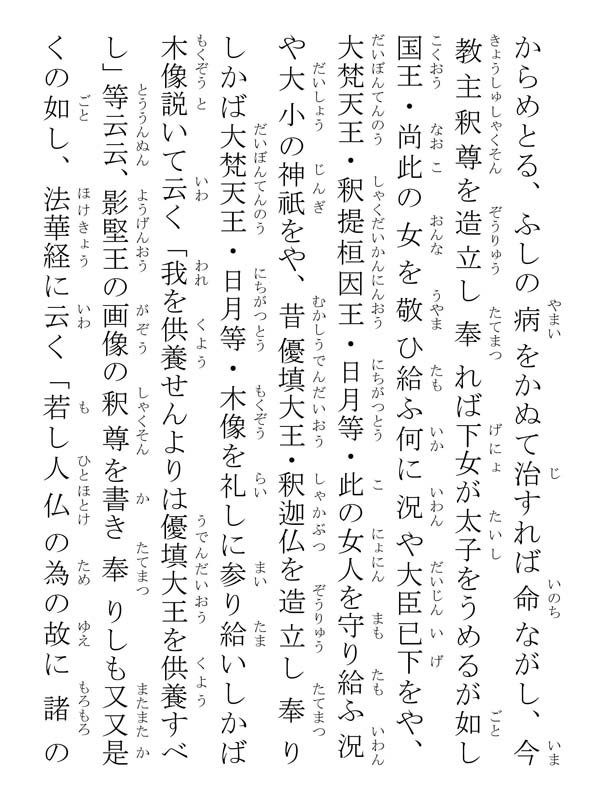 からめとる、ふしの病をかぬて治すれば命ながし、今
教主釈尊を造立し奉れば下女が太子をうめるが如し
国王・尚此の女を敬ひ給ふ何に況や大臣已下をや、
大梵天王・釈提桓因王・日月等・此の女人を守り給ふ況
や大小の神祇をや、昔優填大王・釈迦仏を造立し奉り
しかば大梵天王・日月等・木像を礼しに参り給いしかば
木像説いて云く「我を供養せんよりは優填大王を供養すべ
し」等云云、影堅王の画像の釈尊を書き奉りしも又又是
くの如し、法華経に云く「若し人仏の為の故に諸の